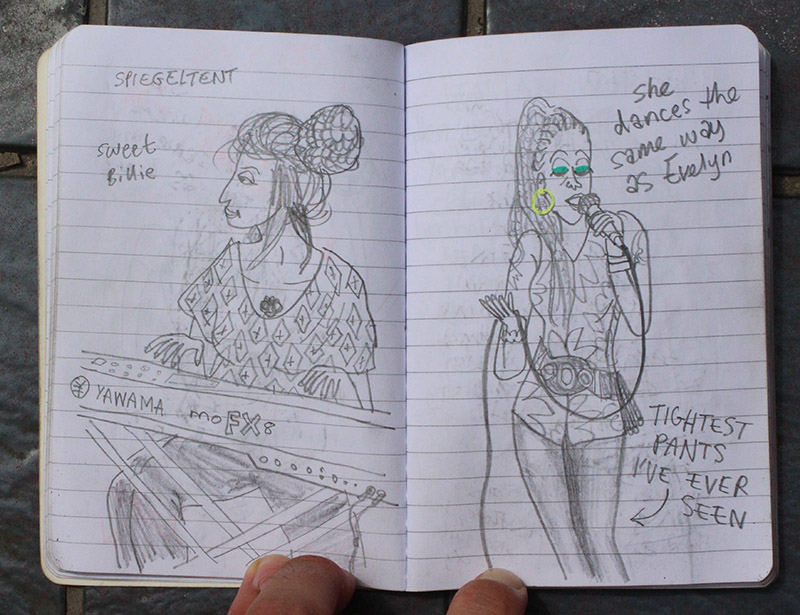 SPIEGELTENT
sweet
Billie
YAWAMA moFX8
she
dances the
same way
as Evelyn
TIGHTEST
PANTS
I'VE EVER
SEEN